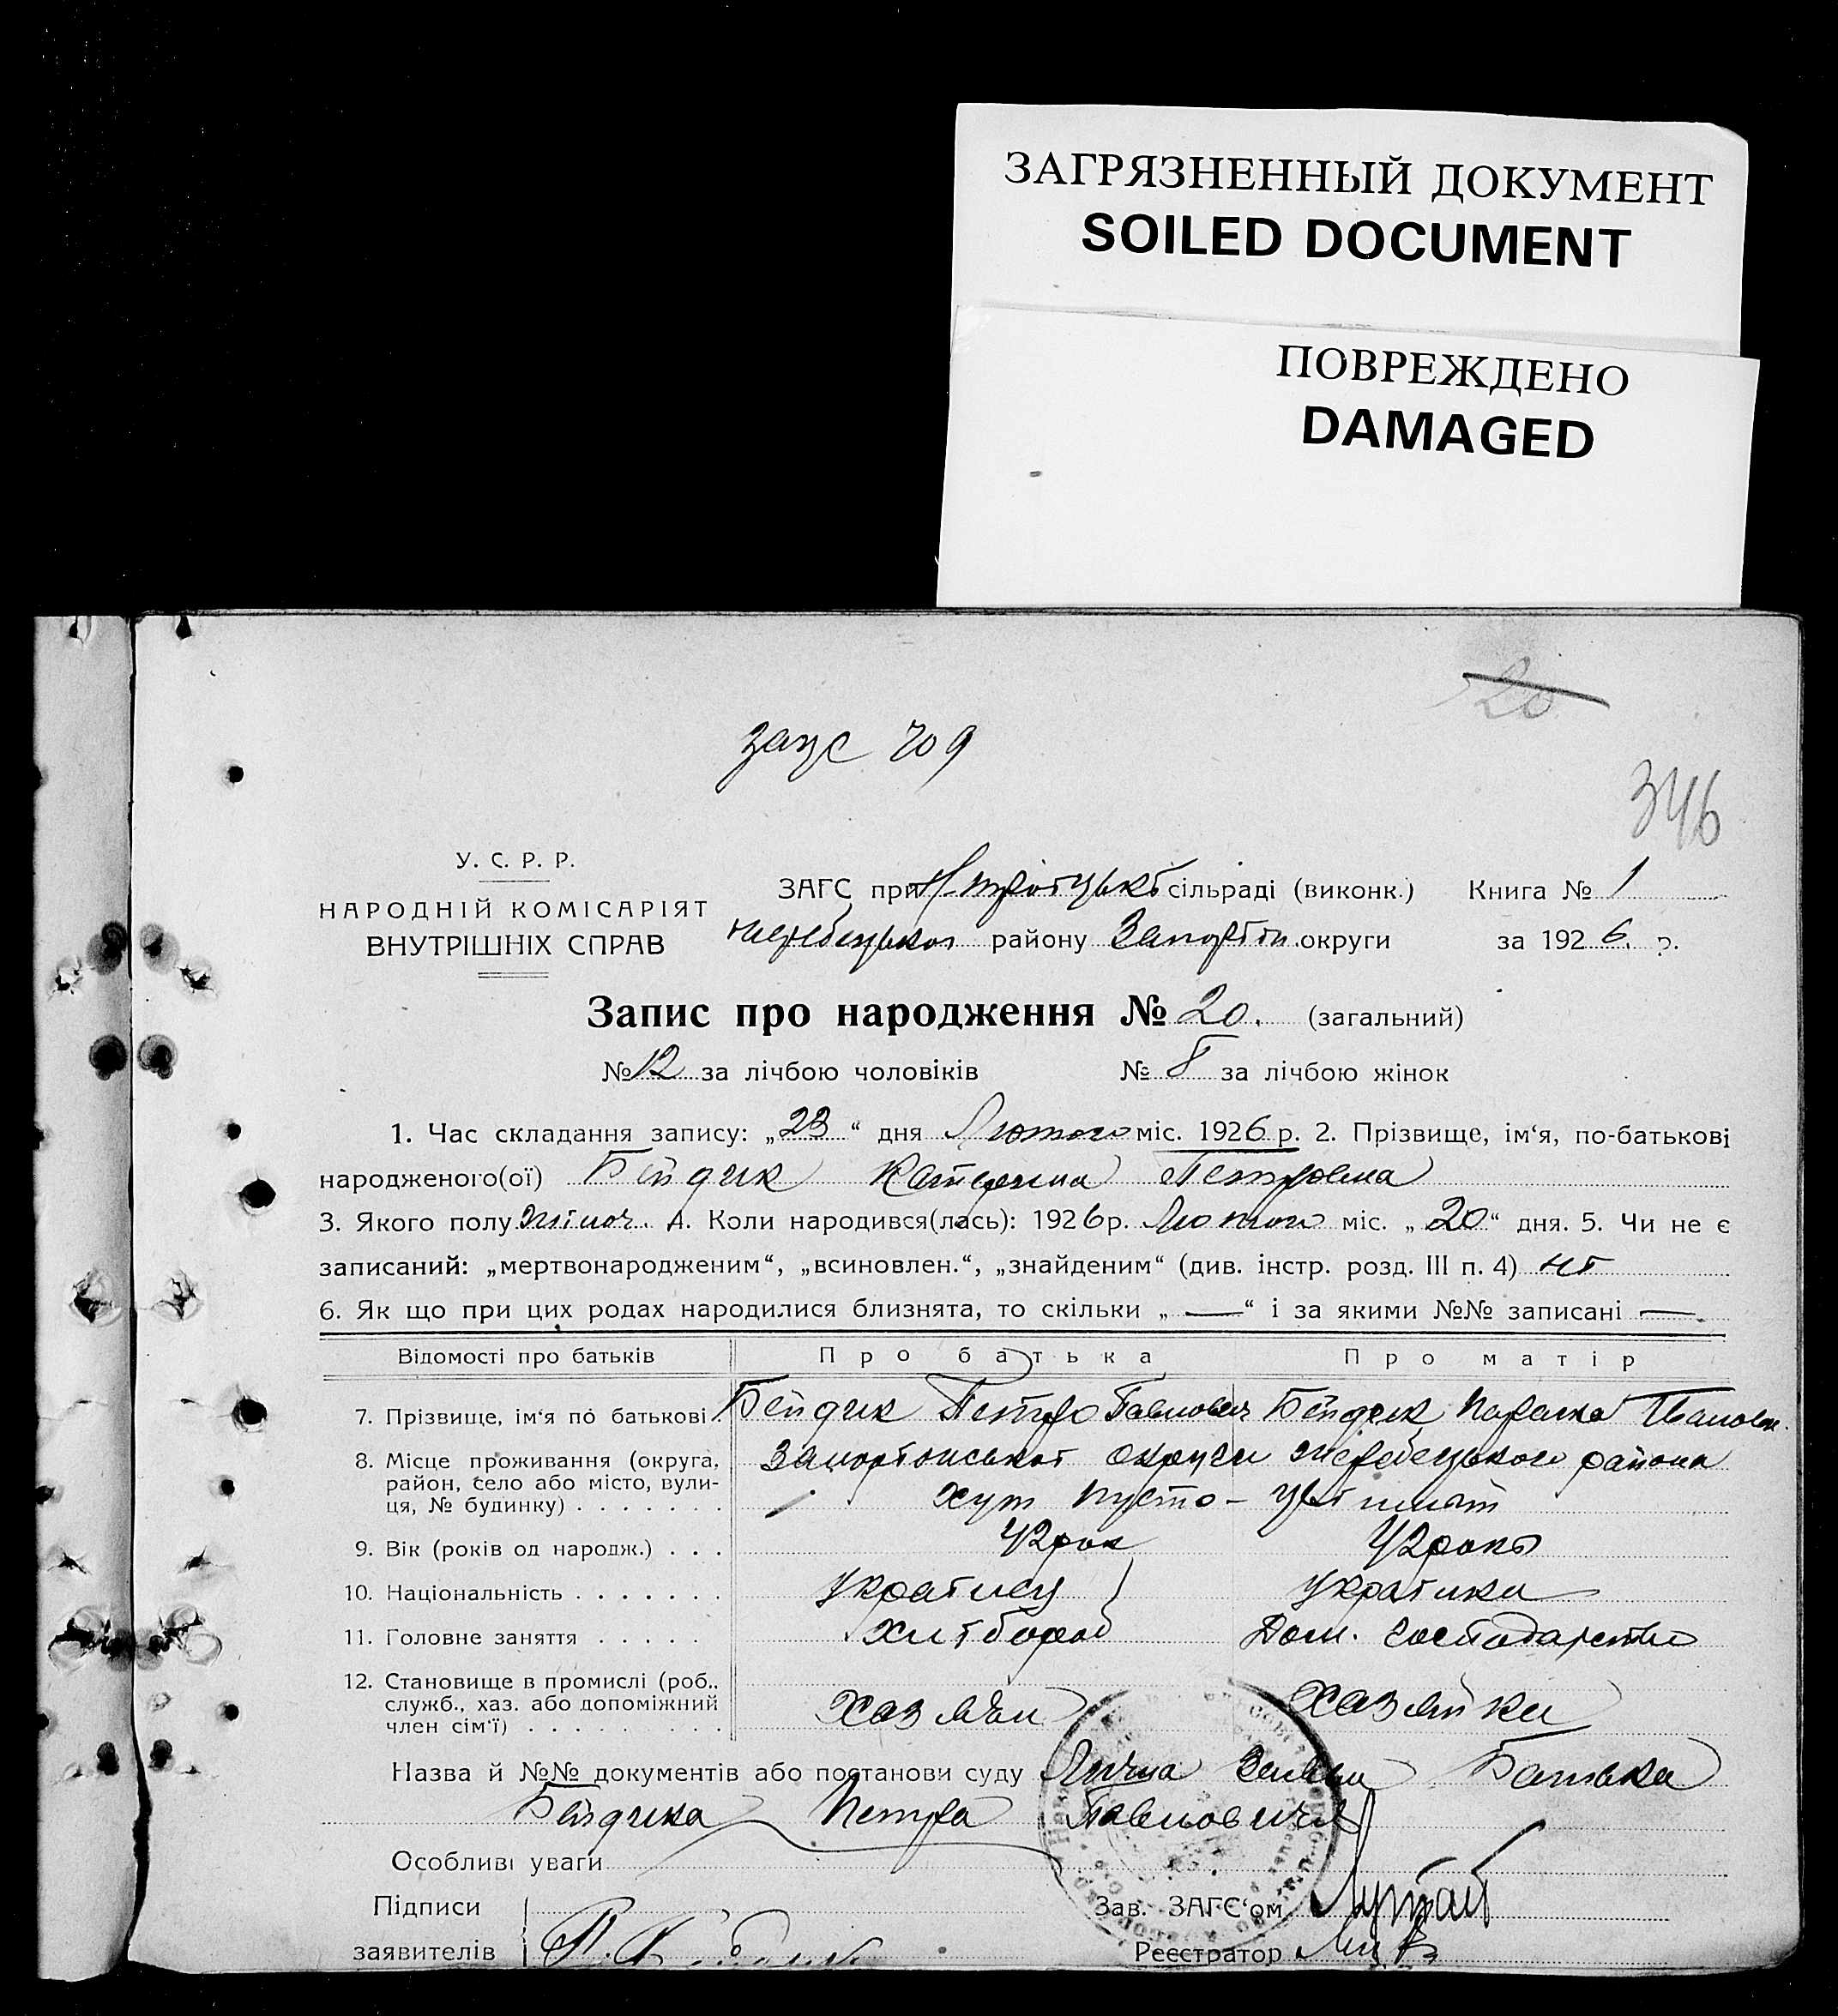 ЗАГРЯЗНЕННЫЙ ДОКУМЕНТ
SOILED DOCUMENT
ПОВРЕЖДЕНО
DAMAGED
20
загс 709
346
У. С. Р. Р.
НАРОДНІЙ КОМІСАРІЯТ
ВНУТРІШНІХ СПРАВ
ЗАГС при сільраді (виконк.) Книга № 1
району округи за 1926 р.
Запис про народження № 20. (загальний)
№ 12 за лічбою чоловіків № 8 за лічбою жінок
1. Час складання запису: „23“ дня Лютого міс. 1926 р. 2. Прізвище, ім‘я, по-батькові
народженого(ої) Бейдик Катерина Петровна
3. Якого полу жіноч. 4. Коли народився(лась): 1926 р. Лютого міс. „20“ дня. 5. Чи не є
записаний: „мертвонародженим“, „всиновлен.“, „знайденим“ (див. інстр. розд. III п. 4) ні
6. Як що при цих родах народилися близнята, то скільки „—“ і за якими №№ записані —
Відомості про батьків Про батька Про матір
7. Прізвище, ім‘я по батькові Бейдик Петро Павлович Бейдик Параска Івановн.
8. Місце проживання (округа, район, село або місто, вулиця, № будинку) Запоріжської округи жеребецького района
хут Пусто-
9. Вік (років од народж.) 42 рок 42 роки
10. Національність українец українка
11. Головне заняття хлібороб Дом. господарство
12. Становище в промислі (роб., служб., хаз. або допоміжний член сім‘ї) хазяїн хазяйка
Назва й №№ документів або постанови суду Лична заява Батька
Бейдика Петра Павловича
Особливі уваги
Підписи
заявителів
Зав. ЗАГС‘ом
Реєстратор